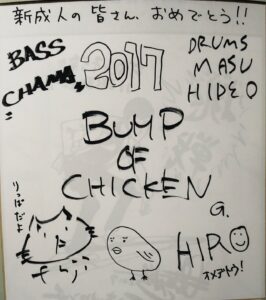 新成人の皆さん、おめでとう!!
BASS
CHAMA
2017
DRUMS
MASU
HIDEO
BUMP
OF
CHICKEN
りっぱだよ
G.
HIRO
オメデトウ!